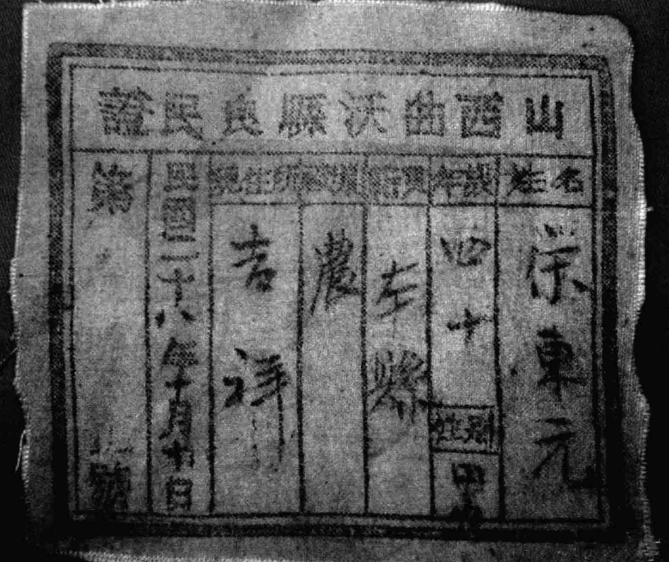 山西曲沃縣良民證
姓名
榮東元
年歲
四十
性別
男
籍貫
本縣
職業
農
現住所
吉祥
民國二十八年十月十日
第
號